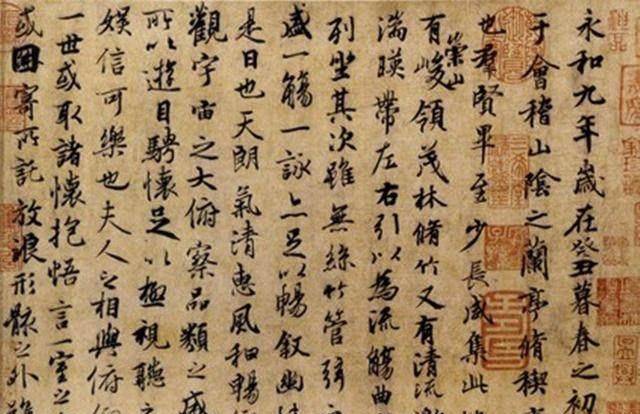 永和九年歲在癸丑暮春之初
于會稽山陰之蘭亭脩稧
也群賢畢至少長咸集此
有崇山峻領茂林脩竹又有清流激
湍暎帶左右引以為流觴曲
列坐其次雖無絲竹管弦之
盛一觴一詠亦足以暢敘幽情
是日也天朗氣清惠風和暢
觀宇宙之大俯察品類之盛
所以遊目騁懷足以極視聽之
娛信可樂也夫人之相與俯仰
一世或取諸懷抱悟言一室之
或因寄所託放浪形骸之外雖